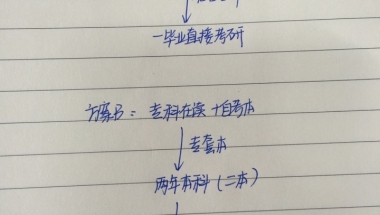 一毕业直接考研
方案B:专科在读+自考本
专套本
两年本科(二本)